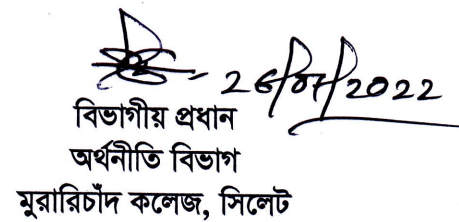 26/07/2022
বিভাগীয় প্রধান
অর্থনীতি বিভাগ
মুরারিচাঁদ কলেজ, সিলেট